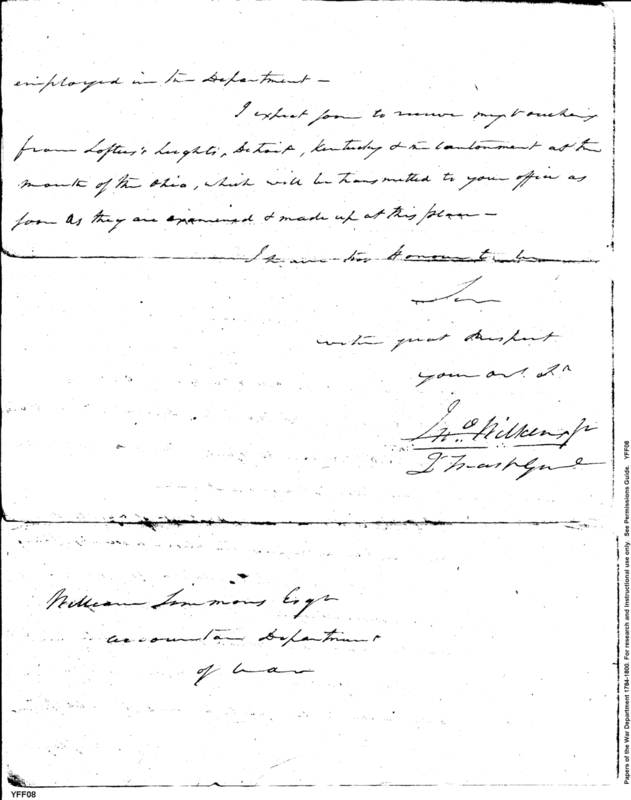 employed in the Department –
I expect soon to receive my vouchers
from Loftus's heights, Detroit, Kentucky & the Cantonment at the
mouth of the Ohio, which will be transmitted to your office as
soon as they are examined & made up at this place –
I have the Honour to be
Sir
with great Respect
your ob. Sr
Jno Wilkins Jr
Q Mast Genl
William Simmons Esqr
accountant Department
of War
YFF08
Papers of the War Department 1784-1800. For research and instructional use only. See Permissions Guide. YFF08